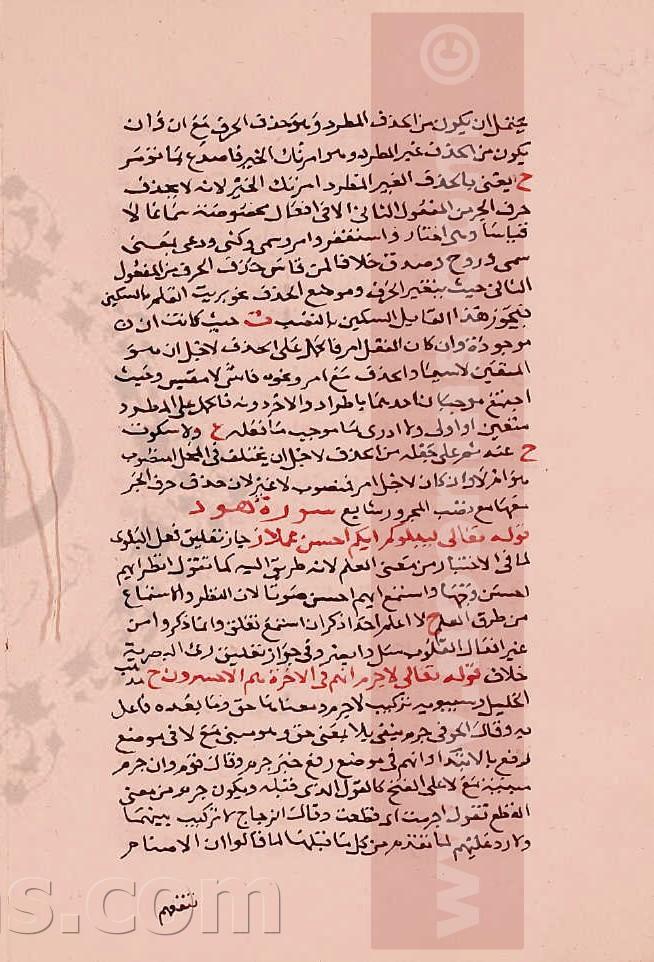 يحتمل ان يكون من الحذف المطرد وهو حذف الحرف مع ان وأن
يكون من الحذف غير المطرد وهو امرتك الخير فاصدع بما تؤمر
ح اعنى بالحذف الغير المطرد امرتك الخير لانه لا يحذف
حرف الجر من المفعول الثانى الا فى افعال محصوصة سماعا لا
قياسا وهى اختار واستغفر وامر وسمى وكنى ودعى بمعنى
سمى وزوج وصدق خلافا لمن قاس حذف الحرف من المفعول
الثانى حيث يتعين الحرف وموضع الحذف نحو بريت القلم بالسكين
فيجوز هذا القايل السكين بالنصب ث حيث كانت ان
موجودة وان كان الفعل امر فالحمل على الحذف لاجل ان هو
المتعين لاسيما والحذف مع امر ونحوه فاش لا مقيس وحيث
اجتمع موجبان احدهما باطراد والاخر دونه فالحمل على المطرد
متعين او اولى ولا ادرى ما موجب ما نقله ع ولا سكوت
ح عنه ثم على جعله من الحذف لاجل ان يختلف فى المحل المنصوب
هو ام لا وان كان لاجل امر فمنصوب لا غير لان حذف حرف الجر
معها مع نصب المجرور شايع سورة هود
قوله تعالى ليبلوكم ايكم احسن عملا ز جاز تعليق فعل البلوى
لما فى الاختبار من معنى العلم لانه طريق اليه كما تقول انظر ايهم
احسن وجها واستمع ايهم احسن صوتا لان النظر والاستماع
من طرق العلم ح لا اعلم احدا ذكر ان استمع تعلق وانما ذكروا من
غير افعال القلوب سل وانظر وفى جواز تعليق رى البصرية
خلاف قوله تعالى لا جرم انهم فى الاخرة هم الاخسرون ح مذهب
الخليل وسيبويه تركيب لا جرم ومعناها حق وما بعده فاعل
به وقال الحوفى جرم مبنى بلا بمعنى حق وهو مبنى مع لا فى موضع
رفع بالابتدا وانهم فى موضع رفع خبر جرم وقال قوم وان جرم
مبنية مع لا على الفتح كالقول الذى قبله ويكون جرم من معنى
القطع تقول جرمت اى قطعت وقال الزجاج لا تركيب بينهما
ولا رد عليهم لما تقدم من كل ما قبلها لما قالوا ان الاصنام
تنفعهم